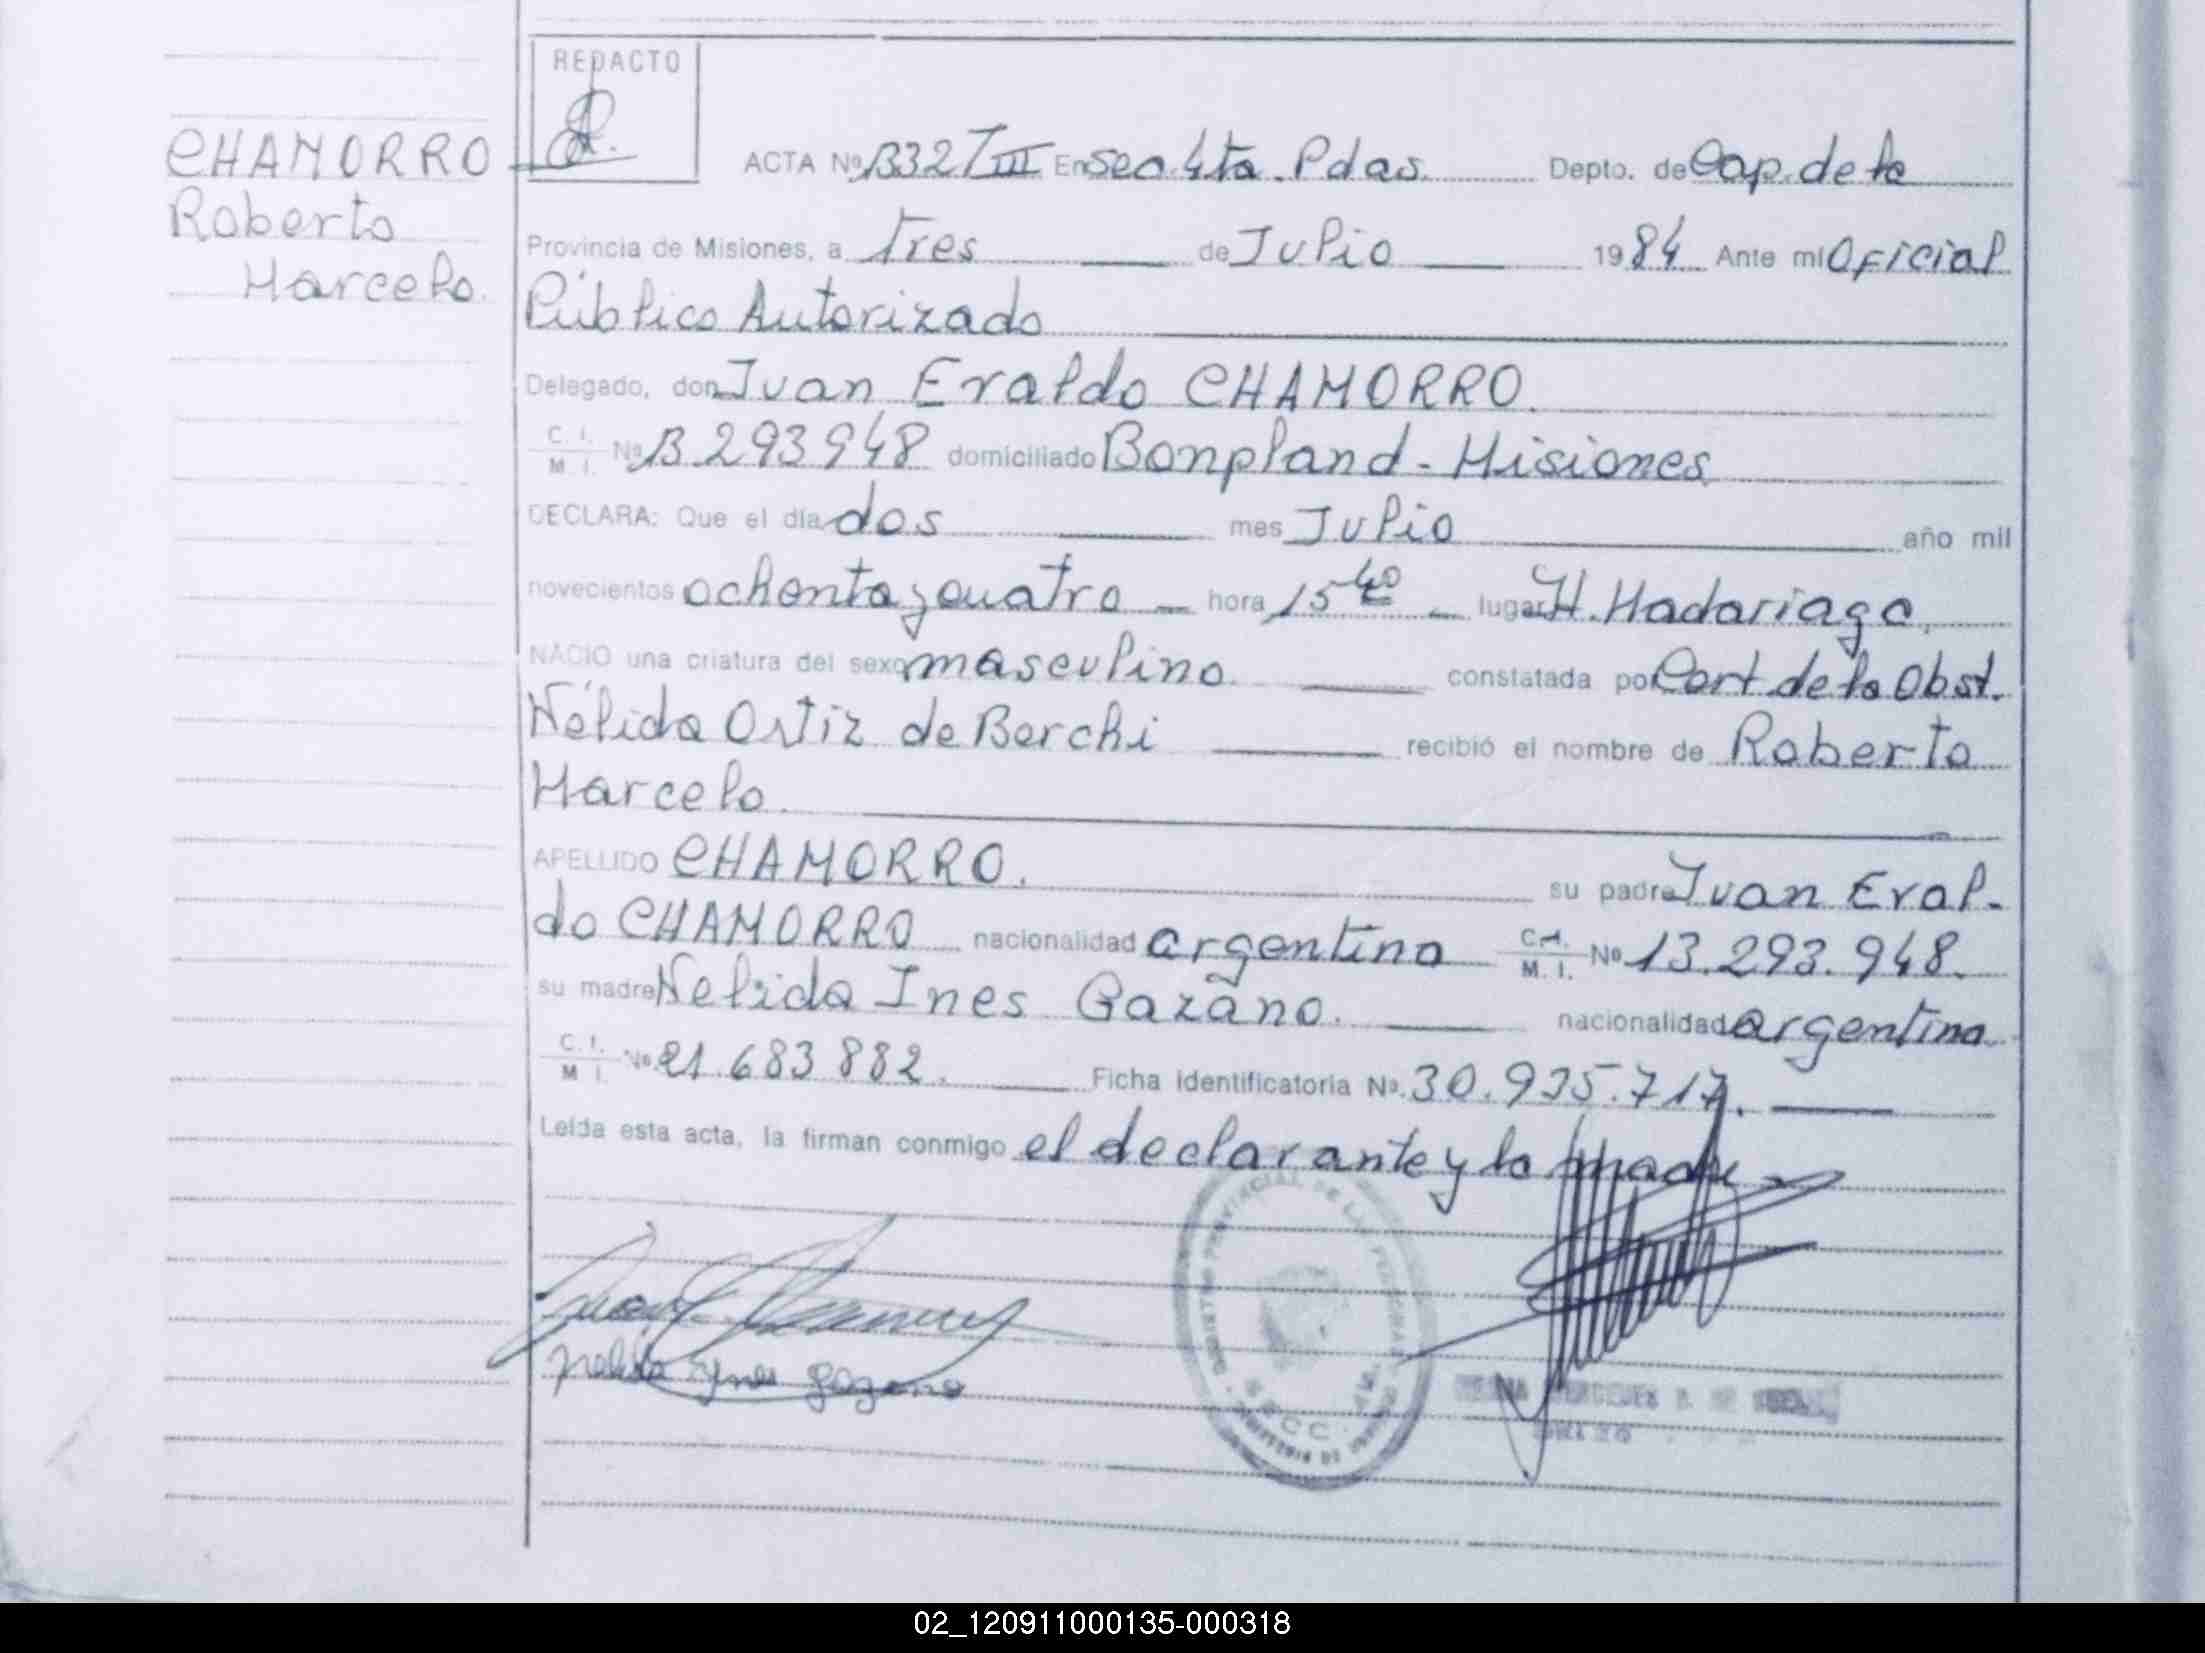 REDACTO
CHAMORRO
Roberto
Marcelo.
ACTA Nº 1332 T III En Sec. 4ta. Pdas. Depto. de Cap. de la
Provincia de Misiones, a Tres de Julio 1984 Ante mi Oficial
Público Autorizado
Delegado, don Juan Eraldo CHAMORRO.
C. I. M. I. Nº 13.293.948 domiciliado Bonpland - Misiones
DECLARA: Que el día dos mes Julio año mil
novecientos ochenta y cuatro hora 15 40 lugar H. Madariaga,
NACIO una criatura del sexo masculino. constatada por Cert. de la Obst.
Nélida Ortiz de Berchi recibió el nombre de Roberto
Marcelo.
APELLIDO CHAMORRO. su padre Juan Eral-
do CHAMORRO nacionalidad argentina C. I. M. I. Nº 13.293.948.
su madre Nelida Ines Gazano. nacionalidad argentina
C. I. M. I. Nº 21.683.882. Ficha identificatoria Nº 30.935.717.
Leída esta acta, la firman conmigo el declarante y la madre
Nelida Ynes Gazano
02_120911000135-000318